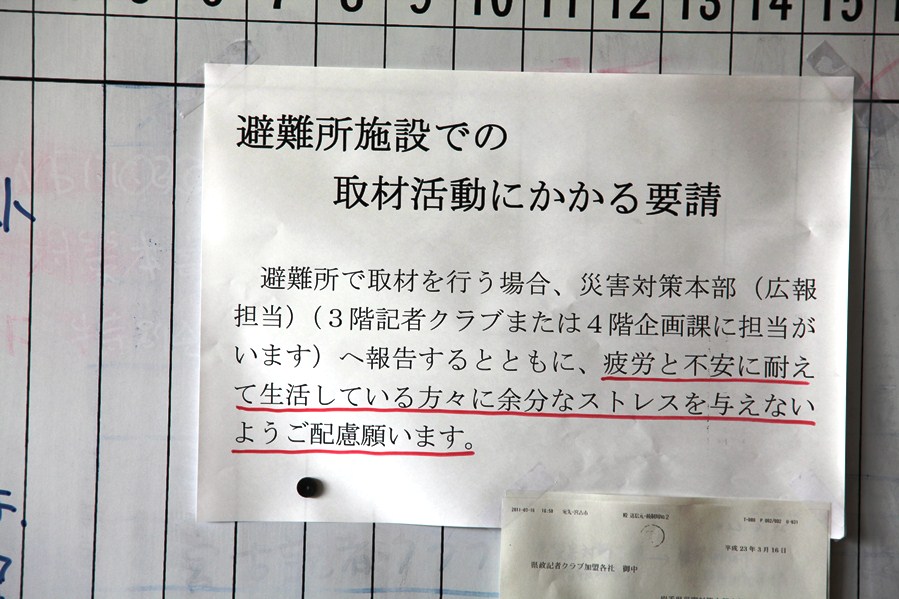 7 8 9 10 11 12 13 14 15
避難所施設での
取材活動にかかる要請
避難所で取材を行う場合、災害対策本部（広報
担当）（３階記者クラブまたは４階企画課に担当が
います）へ報告するとともに、疲労と不安に耐え
て生活している方々に余分なストレスを与えない
ようご配慮願います。
平成23年3月16日
県政記者クラブ加盟各社 御中